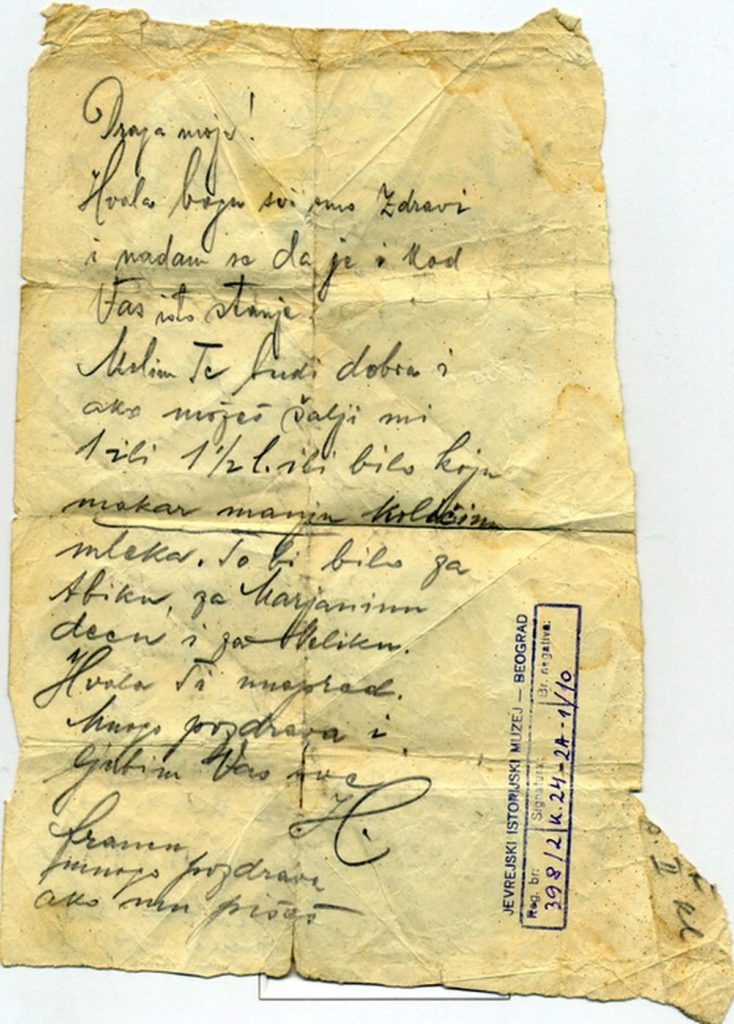 Draga moja!
Hvala bogu svi smo zdravi
i nadam se da je i kod
Vas isto stanje.
Molim Te budi dobra i
ako možeš šalji mi
1 ili 1 1/2 l. ili bilo koju
makar manju količinu
mleka. To bi bilo za
Abiku, za Marjaninu
decu i za Veliku.
Hvala Ti unapred.
Mnogo pozdrava i
ljubim Vas sve
H.
mnogo pozdrava
ako mu pišeš
JEVREJSKI ISTORIJSKI MUZEJ — BEOGRAD
Reg. br: Signatura: Br. negativa:
398/2 K. 24-2A-1/10